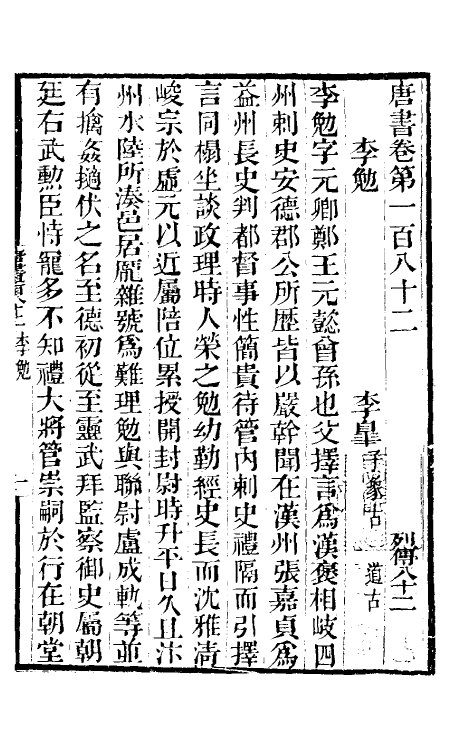 唐書卷第一百八十二 列傳八十二
李勉 李皐子象古 道古
李勉字元卿鄭王元懿曾孫也父擇言爲漢褒相岐四
州刺史安德郡公所歷皆以嚴幹聞在漢州張嘉貞爲
益州長史判都督事性簡貴待管內刺史禮隔而引擇
言同榻坐談政理時人榮之勉幼勤經史長而沈雅清
峻宗於虛元以近屬陪位累授開封尉時升平日久且汴
州水陸所湊邑居龐雜號爲難理勉與聯尉盧成軌等並
有擒姦擿伏之名至德初從至靈武拜監察御史屬朝
廷右武勲臣恃寵多不知禮大將管崇嗣於行在朝堂
李勉 一